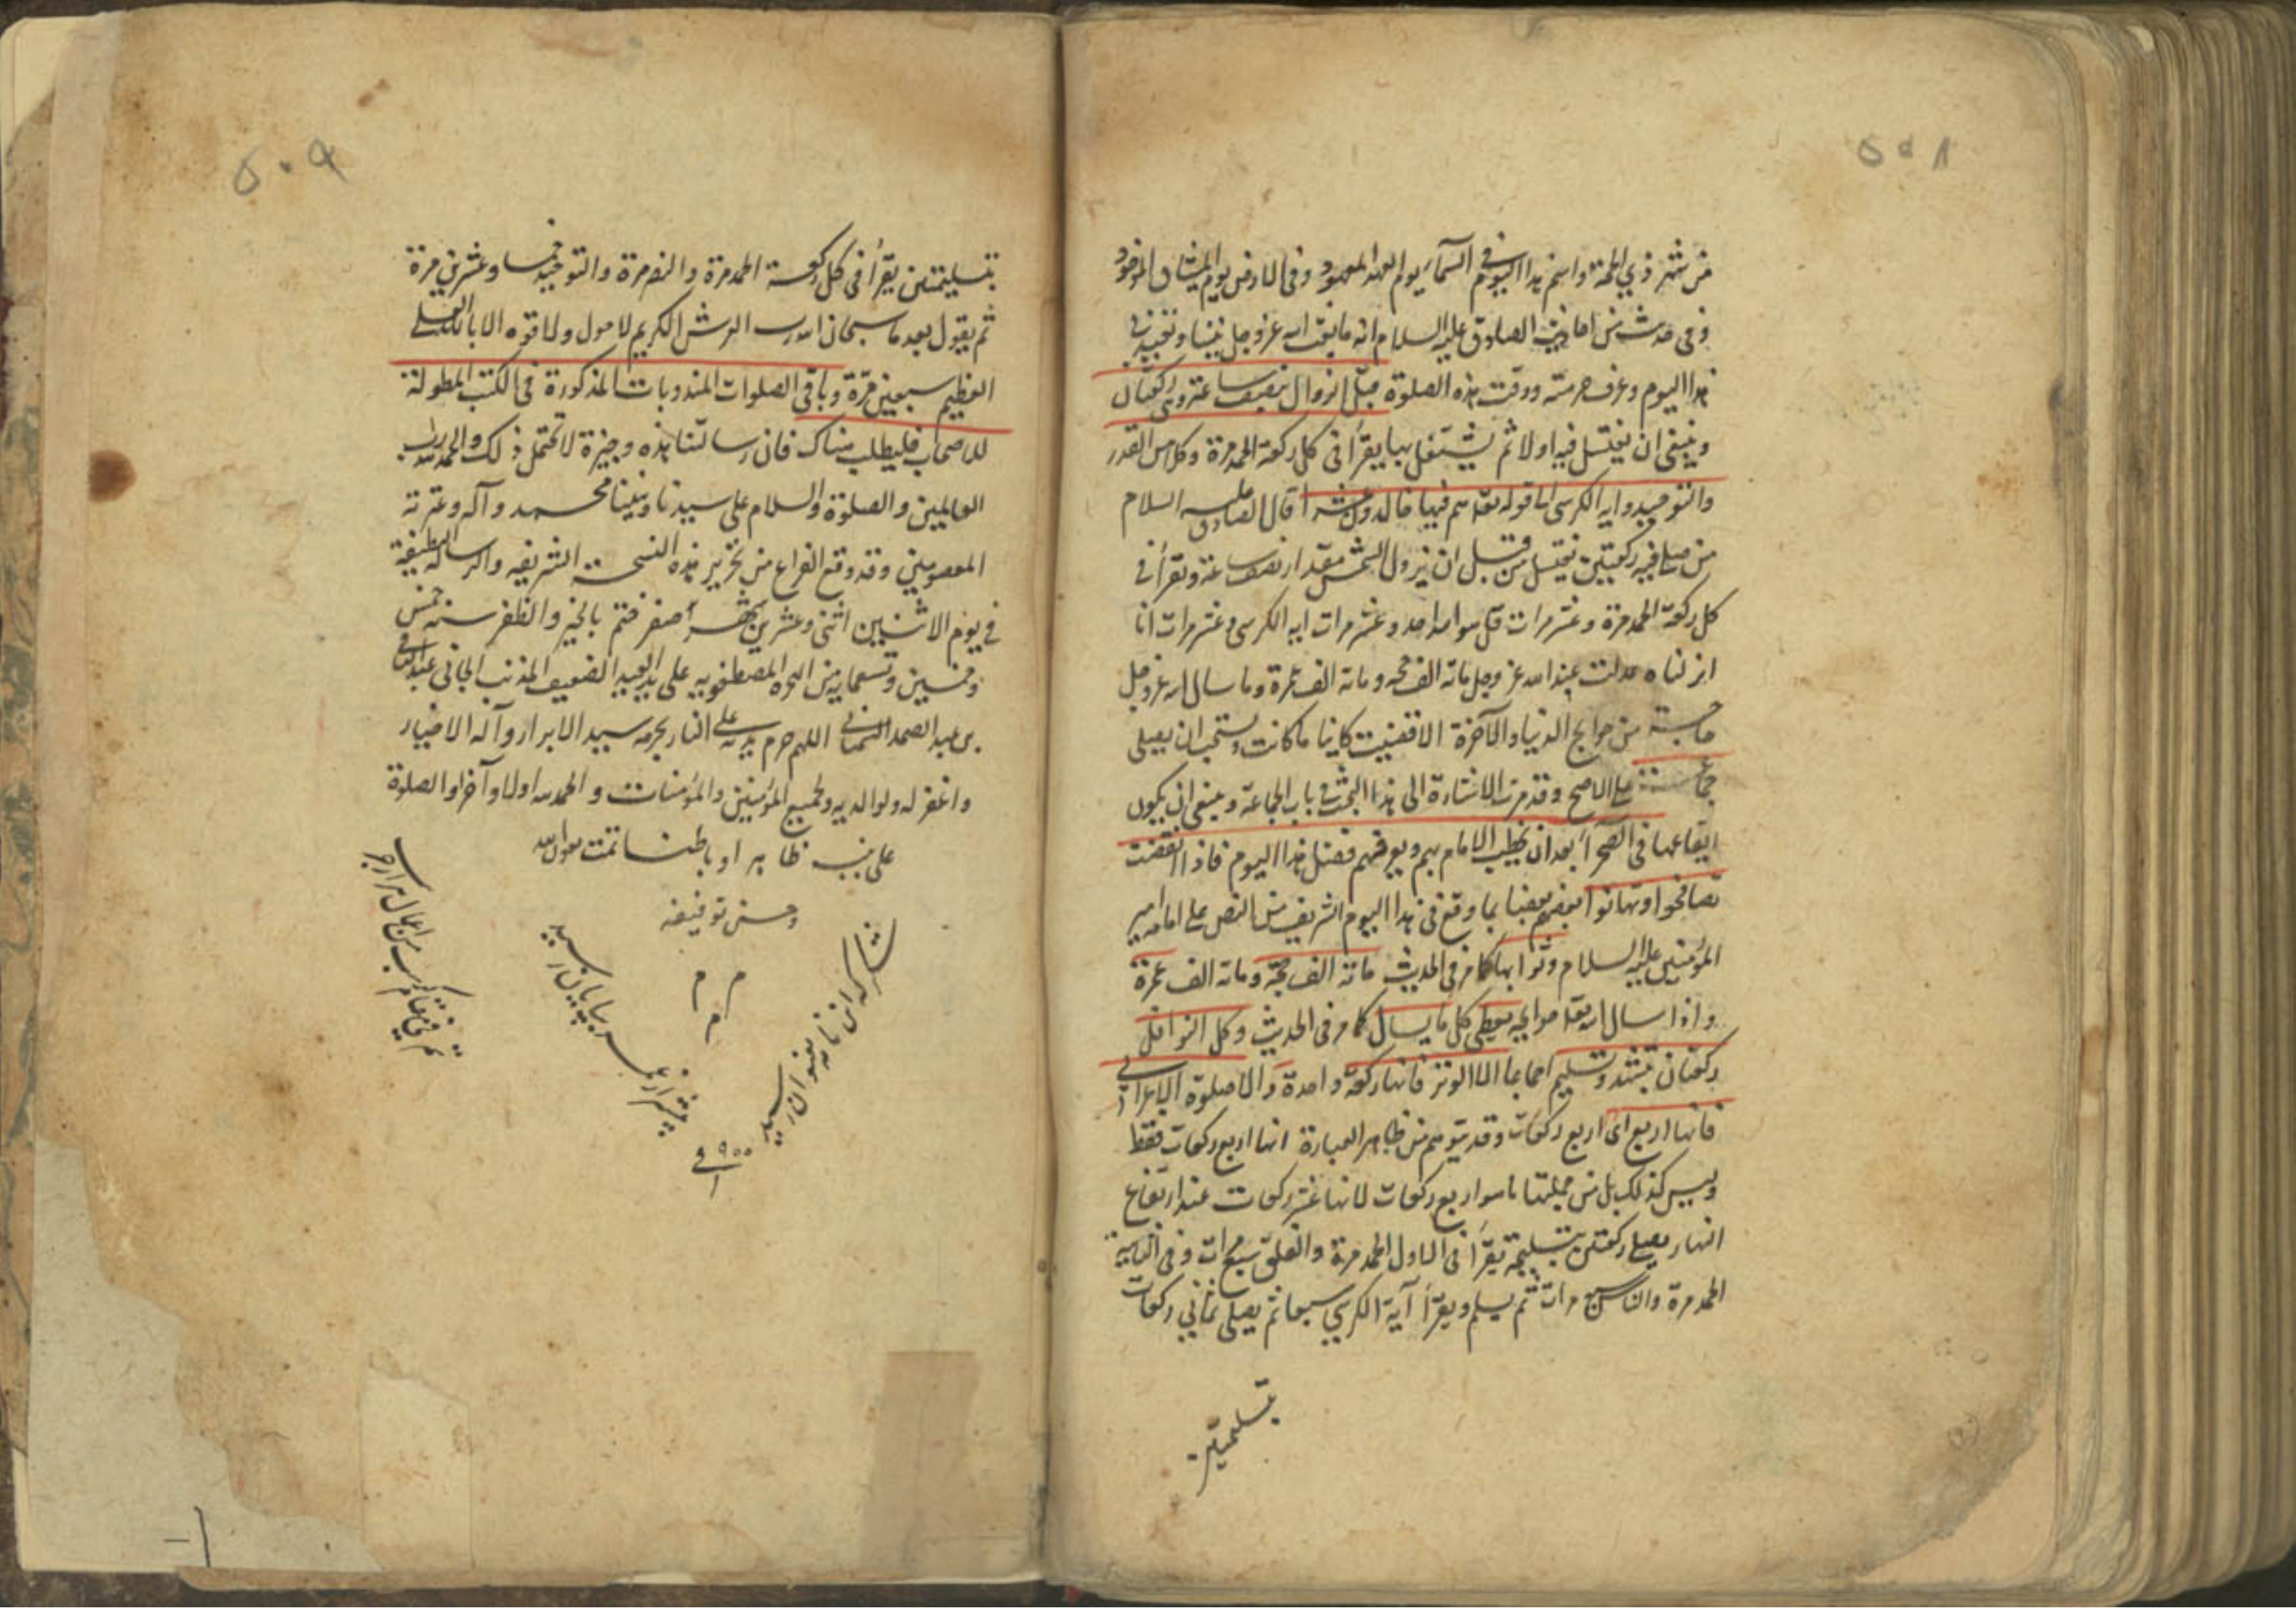 ٥٠٨
من شهر ذي الحجة واسم هذا اليوم في السماء يوم العهد المعهود وفي الارض يوم الميثاق الماخوذ
وفي حديث من احاديث الصادق عليه السلام انه ما بعث الله عز وجل نبيا وتعيد في
هذا اليوم وعرف حرمته ووقت هذه الصلوة قبل الزوال بنصف ساعة وهي ركعتان
وينبغي ان يغتسل فيه اولا ثم يشتغل بها يقرأ في كل ركعة الحمد مرة وكلا من القدر
والتوحيد واية الكرسي الى قوله تعا هم فيها خالدون عشرا قال الصادق عليه السلام
من صلى فيه ركعتين يغتسل من قبل ان تزول الشمس مقدار نصف ساعة ويقرأ في
كل ركعة الحمد مرة وعشر مرات قل هو الله احد وعشر مرات اية الكرسي وعشر مرات انا
انزلناه عدلت عند الله عز وجل مائة الف حجة ومائة الف عمرة وما سال الله عز وجل
حاجة من حوايج الدنيا والآخرة الا قضيت كاينا ما كانت ويستحب ان يصلى
جماعة على الاصح وقد مرت الاشارة الى هذا البحث في باب الجماعة وينبغي ان يكون
ايقاعها في الصحرآء بعد ان يخطب الامام بهم ويعرفهم فضل هذا اليوم فاذا انقضت
تصافحوا وتهانوا بعضهم بعضا بما وقع في هذا اليوم الشريف من النص على امامة امير
المؤمنين عليه السلام وثوابها كما مر في الحديث مائة الف حجة ومائة الف عمرة
واذا سال الله تعا حوايجه يعطى كل ما يسال كما مر في الحديث وكل النوافل
ركعتان بتشهد وتسليم اجماعا الا الوتر فانها ركعة واحدة والا صلوة الاعرابي
فانها اربع اي اربع ركعات وقد يتوهم من ظاهر العبارة انها اربع ركعات فقط
وليس كذلك بل من جملتها ما هو اربع ركعات لانها عشر ركعات عند ارتفاع
النهار يصلي ركعتين بتسليمة يقرأ في الاول الحمد مرة والفلق سبع مرات وفي الثانية
الحمد مرة والناس سبع مرات ثم يسلم ويقرأ آية الكرسي سبعا ثم يصلى ثماني ركعات
بتسليمتين
٥٠٩
بتسليمتين يقرأ في كل ركعة الحمد مرة والنصر مرة والتوحيد خمسا وعشرين مرة
ثم يقول بعدها سبحان الله رب العرش الكريم لا حول ولا قوة الا بالله العلي
العظيم سبعين مرة وباقي الصلوات المندوبات المذكورة في الكتب المطولة
للاصحاب فليطلب هناك فان رسالتنا هذه وجيزة لا تحتمل ذلك والحمد لله رب
العالمين والصلوة والسلام على سيدنا ونبينا محمد وآله وعترته
المعصومين وقد وقع الفراغ من تحرير هذه النسخة الشريفه والرسالة اللطيفة
في يوم الاثنين اثنى وعشرين شهر صفر ختم بالخير والظفر سنه خمس
وخمسين وتسعمايه من الهجرة المصطفويه على يد العبد الضعيف المذنب الجاني
بن عبد الصمد اللهم حرم يديه على النار بحرمه سيد الابرار وآله الاخيار
واغفر له ولوالديه ولجميع المؤمنين والمؤمنات والحمد لله اولا وآخرا والصلوة
على نبيه ظاهرا وباطنا تمت بعون الله
وحسن توفيقه
م م م
شكر كه اين نامه بعنوان رسيد
پيشتر از عمر بپايان رسيد